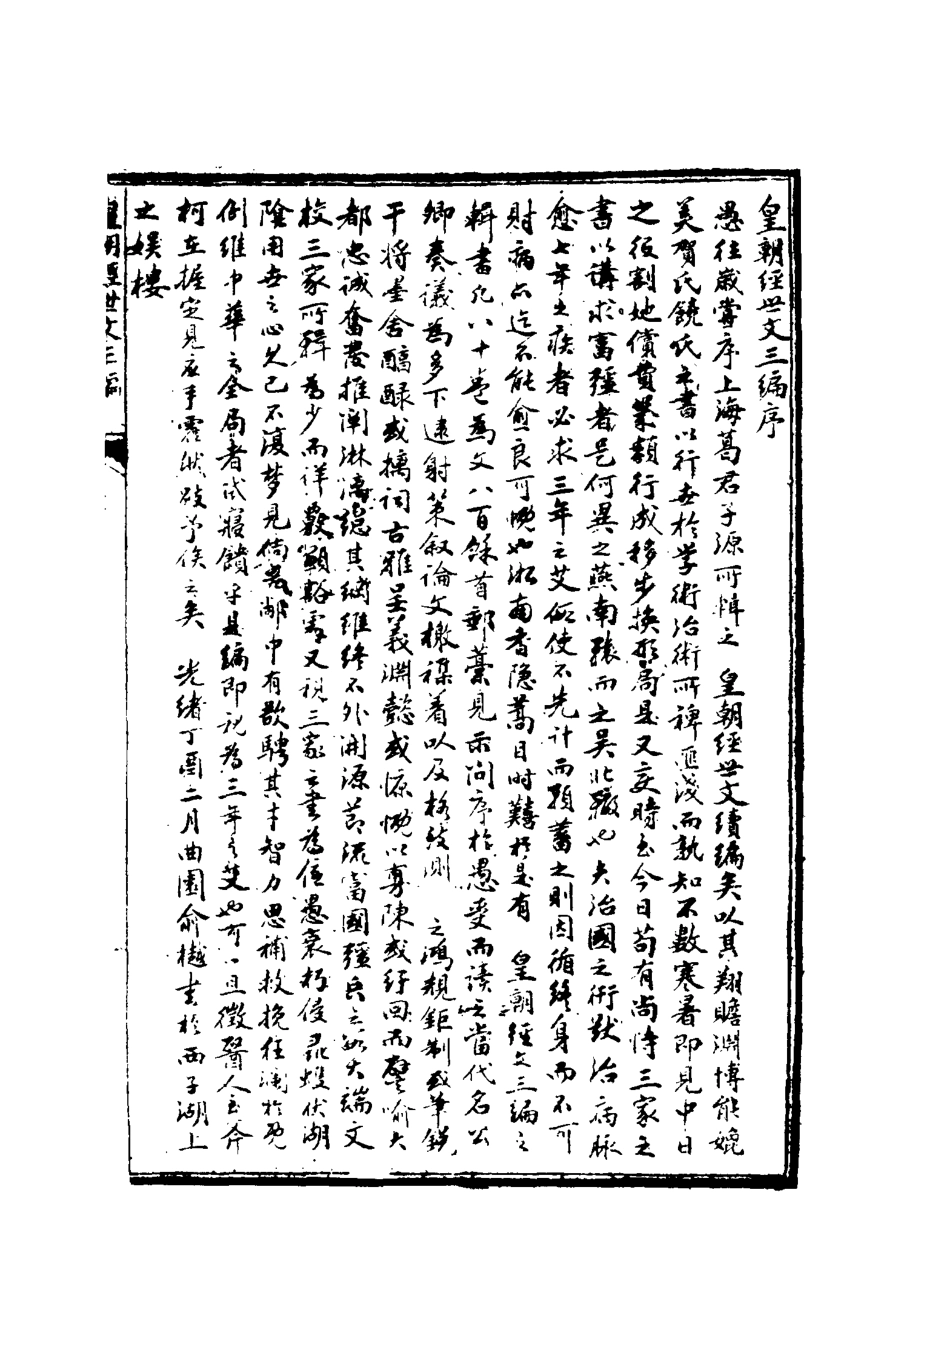 皇朝經世文三編序
愚往歲嘗序上海葛君子源所輯之 皇朝經世文續編矣以其翔贍淵博能媲
美賀氏饒氏之書以行世於學術治術所裨匪淺而孰知不數寒暑即見中日
之役割地償費業類行成移步換形局是又变時至今日苟有尚恃三家之
書以講求富彊者是何異之燕南轅而之吳北轍也夫治國之術猷治病脉
愈七年之疾者必求三年之艾假使不先計而預蓄之則因循終身而不可
財病亦迄不能愈良可慨也淞南香隱蒿目時艱於是有 皇朝經文三編之
輯書凡八十卷為文八百餘首郵藁見示問序於愚受而讀之當代名公
卿奏議為多下逮射策叙論文檄襍著以及格致則 之鴻規鉅制或筆鋩
干將墨舍醇醁或摛詞古雅呈義淵懿或慷慨以専陳或紆回而譬喻大
都忠誠奮發推闡淋漓總其綱維終不外開源節流富國彊兵之數大端文
校三家所輯為少而詳覈顯豁處又視三家之書為倍愚衰朽侵尋蟄伏湖
陰用世之心久已不復夢見倘寓鄰中有歆騁其才智力思補救挽狂瀾於既
倒維中華之全局者試寢饋乎是編即視為三年之艾也可一旦徵醫人至斧
柯在握定見应手霍然敬予俟之矣 光緒丁酉二月曲園俞樾書於西子湖上
之娱樓
皇朝經世文三編